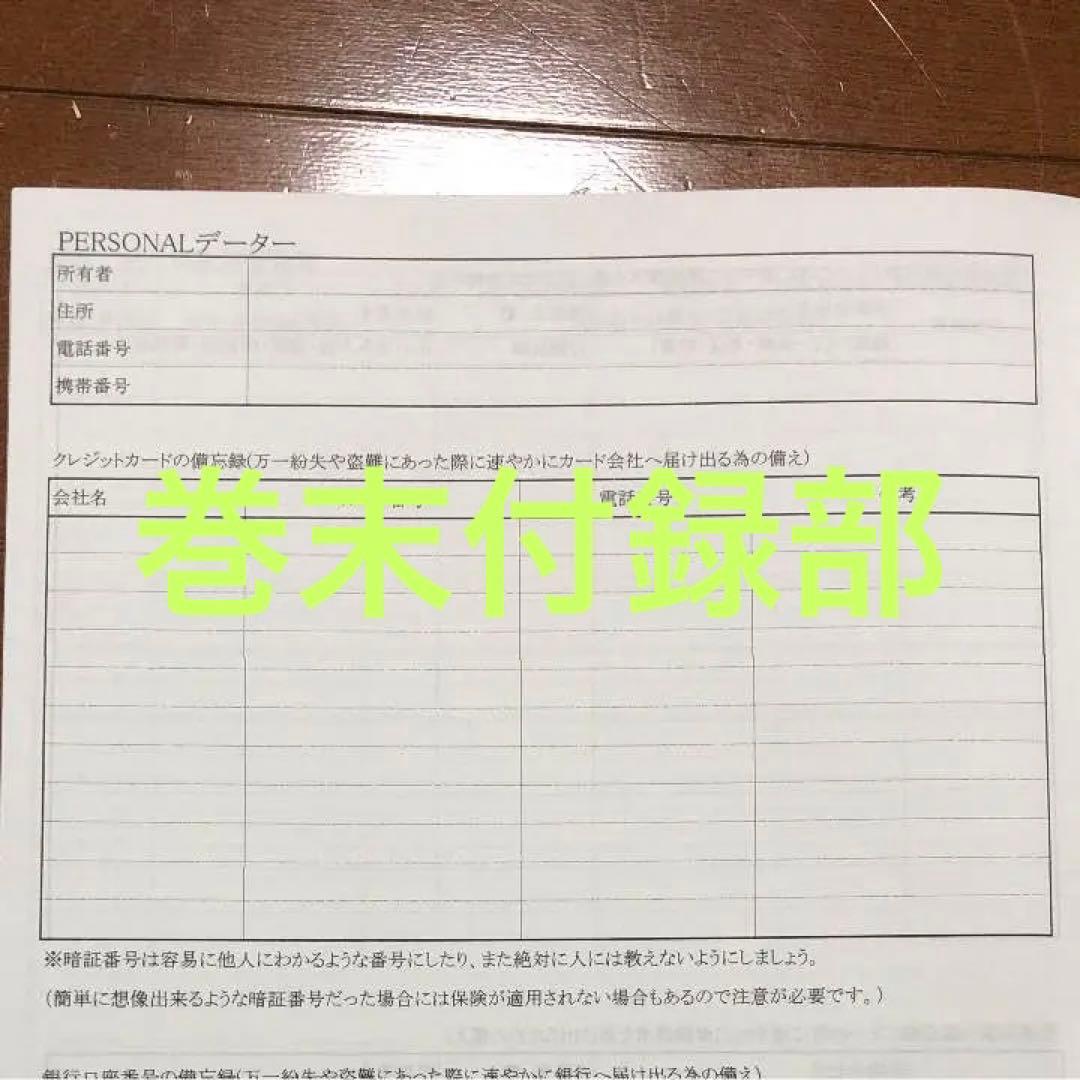 PERSONALデーター
所有者
住所
電話番号
携帯番号
クレジットカードの備忘録(万一紛失や盗難にあった際に速やかにカード会社へ届け出る為の備え)
会社名 電話番号 備考
巻末付録部
※暗証番号は容易に他人にわかるような番号にしたり、また絶対に人には教えないようにしましょう。
(簡単に想像出来るような暗証番号だった場合には保険が適用されない場合もあるので注意が必要です。)
銀行口座番号の備忘録(万一紛失や盗難にあった際に速やかに銀行へ届け出る為の備え)